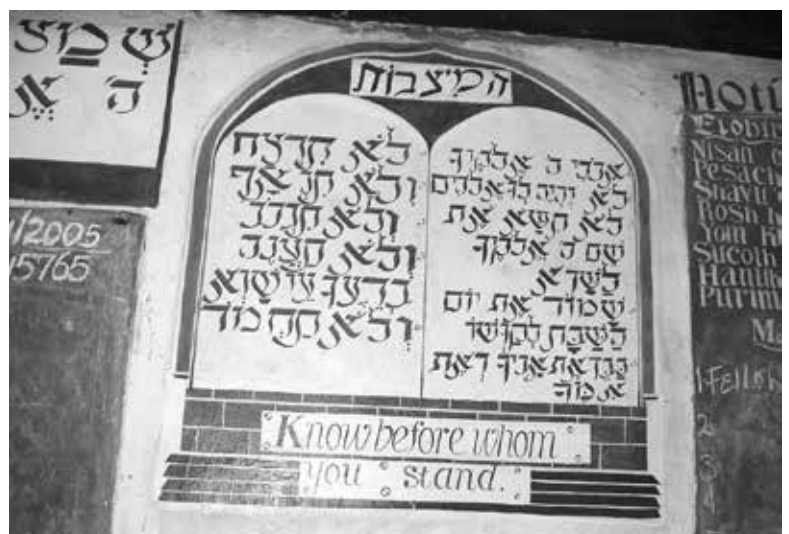 המיצבות
אנכי ה אלקיך
לא יהיה לך אלהים
לא תשא את
שם ה אלקיך
לשוא
שמור את יום
השבת לקדשו
כבד את אביך ואת
אמך
לא תרצח
ולא תנאף
ולא תגנב
ולא תענה
ברעך עד שוא
ולא תחמד
Know before whom
you stand.
/2005
5765
Noti
Nisan
Pesach
Shavu
Rosh
Yom
Sucoth
Hanuk
Purim
Ma
1 Fellow
2
3
4